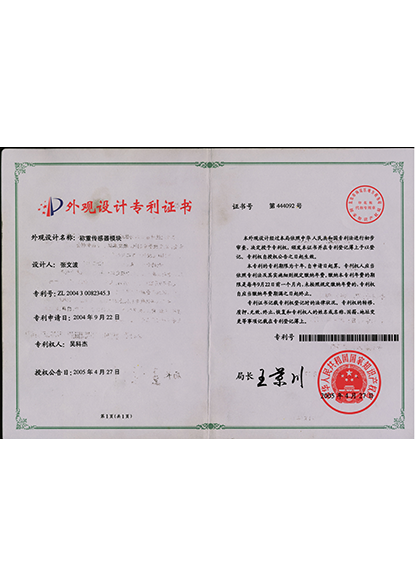 外观设计专利证书
外观设计名称：称重传感器模块
设计人：张文波
专利号：ZL 2004 3 0082345.3
专利申请日：2004年9月22日
专利权人：莫科杰
授权公告日：2005年4月27日
第1页(共1页)
证书号 第444092号
本外观设计经过本局依照中华人民共和国专利法进行初步
审查，决定授予专利权，颁发本证书并在专利登记簿上予以登
记。专利权自授权公告之日起生效。
本专利的专利权期限为十年，自申请日起算。专利权人应当
依照专利法及其实施细则规定缴纳年费。缴纳本专利年费的期
限是每年9月22日前一个月内。未按照规定缴纳年费的，专利权自
应当缴纳年费期满之日起终止。
专利证书记载专利权登记时的法律状况。专利权的转移、
质押、无效、终止、恢复和专利权人的姓名或名称、国籍、地址变
更等事项记载在专利登记簿上。
专利号
局长 王景川
中华人民共和国国家知识产权局
2005年4月27日